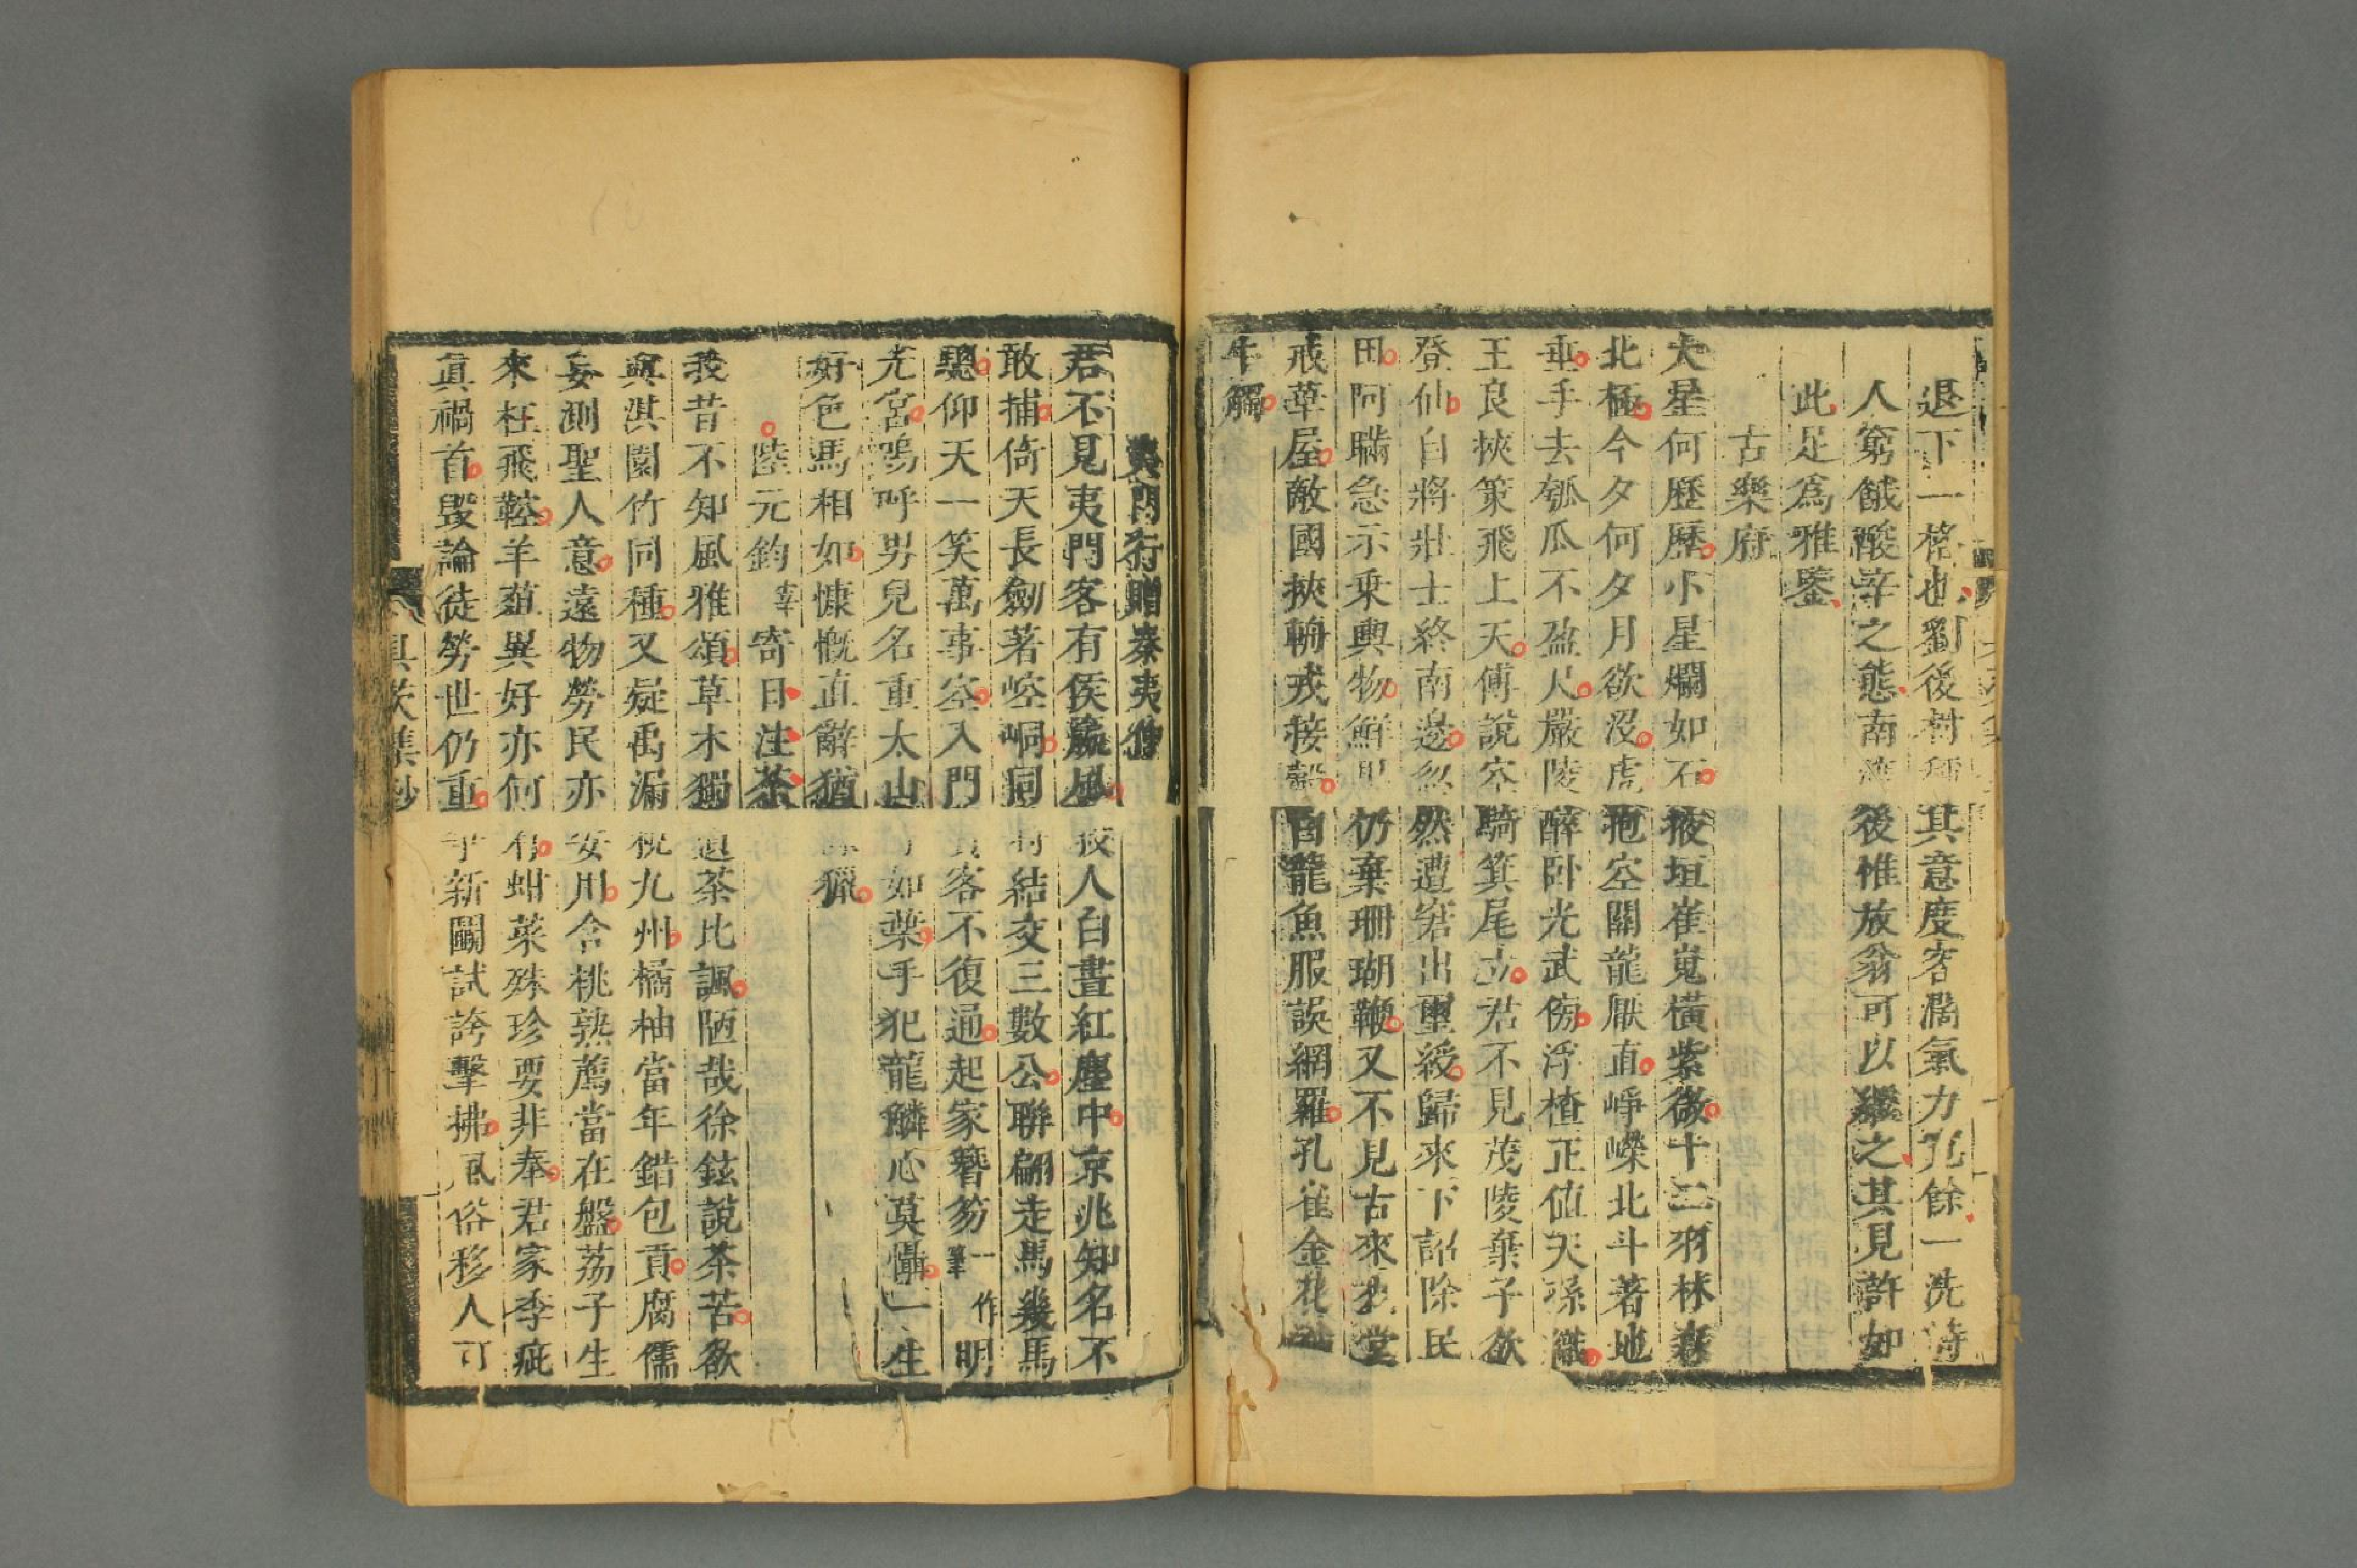 退下一格也劉後村稱其意度宏濶氣力寬餘一洗詩
人窮餓酸辛之態南渡後惟放翁可以繼之其見許如
此足爲雅鑒
古樂府
大星何歷歷小星爛如石掖垣崔嵬橫紫微十二羽林森
北極今夕何夕月欲沒虎抱空關龍厭直崢嶸北斗著地
垂手去瓠瓜不盈尺嚴陵醉卧光武傍浮槎正值天孫織
王良挾策飛上天傅說空騎箕尾立君不見茂陵棄子欲
登仙自將壯士終南邊忽然遭窘出璽綬歸來下詔除民
田阿瞞急示乗輿物鮮卑仍棄珊瑚鞭又不見古來明堂
戒草屋敵國挾輈戎接轂白龍魚服誤網羅孔雀金花
牛觸
夷門行贈秦夷仲
君不見夷門客有侯嬴風殺人白晝紅塵中京兆知名不
敢捕倚天長劒著崆峒同時結交三數公聯翩走馬幾馬
驄仰天一笑萬事空入門賓客不復通起家簪笏一作筆明
光宮嗚呼男兒名重太山身如葉手犯龍鱗心莫懾一生
好色馬相如慷慨直辭猶諫獵
陸元鈞宰寄日注茶
我昔不知風雅頌草木獨遺茶比諷陋哉徐鉉說茶苦欲
與淇園竹同種又疑禹漏稅九州橘柚當年錯包貢腐儒
妄測聖人意遠物勞民亦安用含桃熟薦當在盤荔子生
來枉飛鞚羊葅異好亦何有蚶菜殊珍要非奉君家季疵
真禍首毀論徒勞世仍重爭新鬬試誇擊拂風俗移人可
具茨集鈔